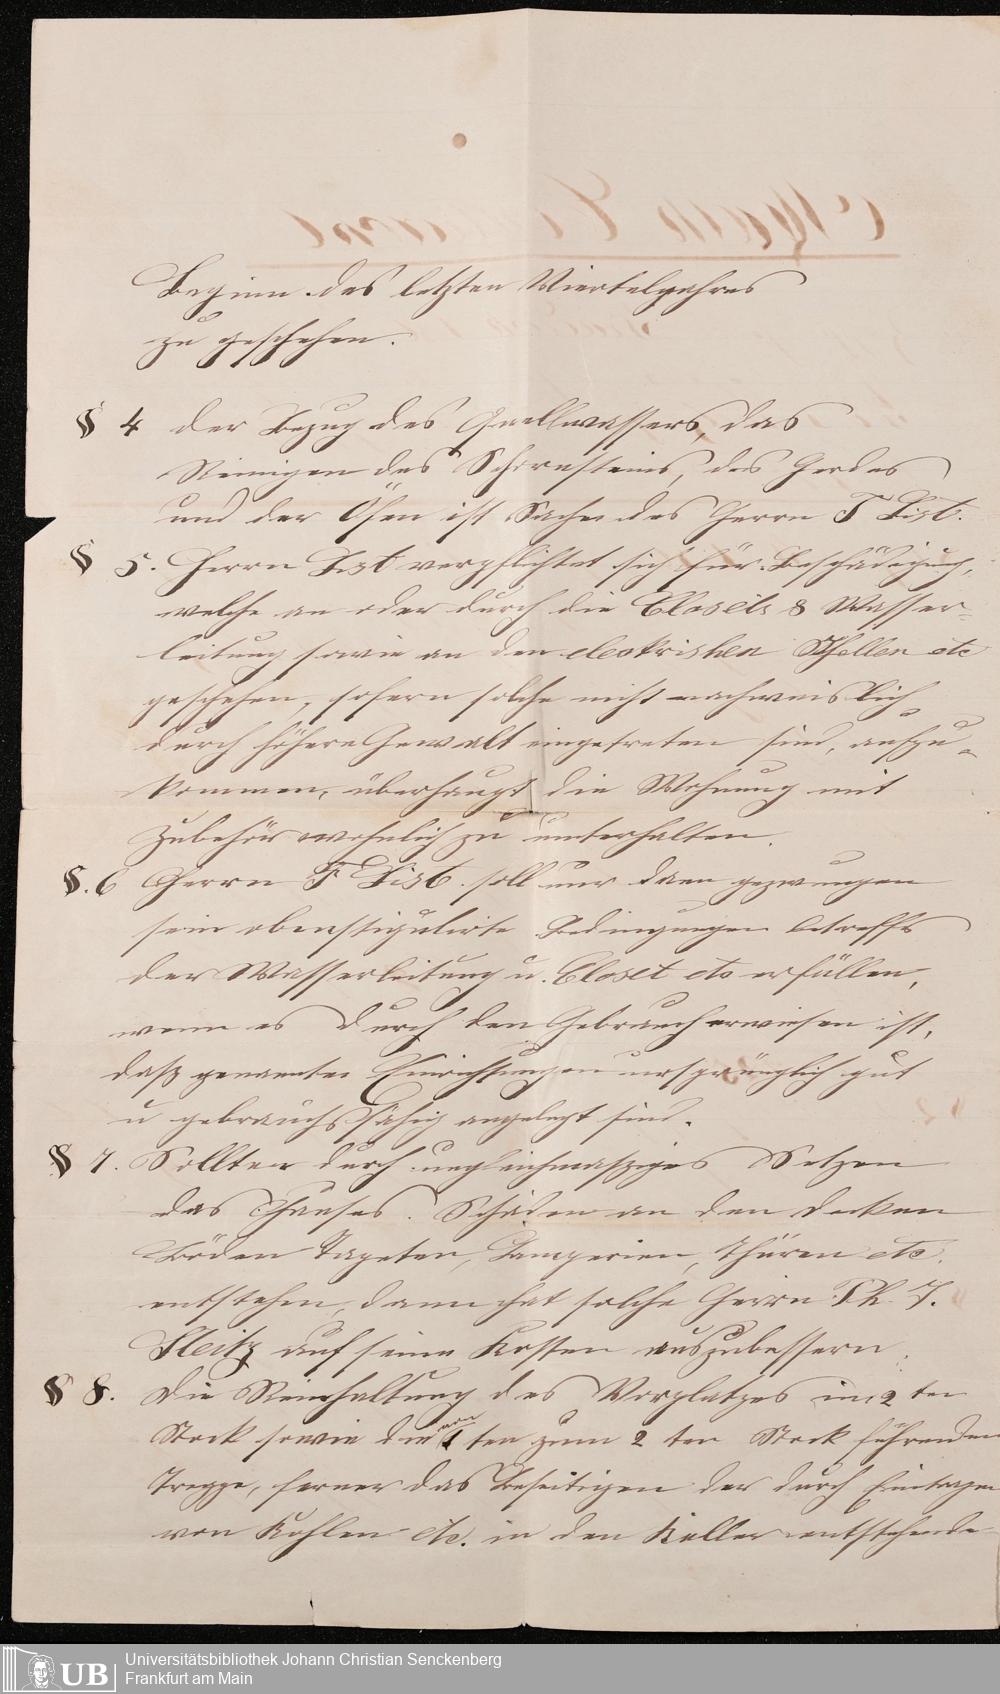 Beginn des letzten Vierteljahres
zu geschehen.
§ 4 der Bezug des Quellwassers, das
Reinigen des Schornsteins, des Herdes
und der Öfen ist Sache des Herrn F List.
§ 5. Herrn List verpflichtet sich für Beschädigung,
welche an oder durch die Closets & Wasser-
leitung sowie an den electrishen Schellen etc
geschehen, sofern solche nicht nachweislich
durch höhere Gewalt eingetreten sind, aufzu-
kommen, überhaupt die Wohnung mit
Zubehör wohnlich zu unterhalten.
§. 6 Herrn F List. soll nur dann gezwungen
sein obenstipulirte Bedingungen betreffs
der Wasserleitung u. Closet etc erfüllen,
wenn es durch den Gebrauch erwiesen ist,
daß genannte Einrichtungen ursprünglich gut
u gebrauchsfähig angelegt sind.
§ 7. Sollten durch ungleichmasziges Setzen
des Hauses. Schäden an den Decken
Böden Tapeten, Lamperien, Thüren etc.
entstehen, dann hat solche Herrn Ph. J.
Fleitz auf seine Kosten auszubessern.
§ 8. Die Reinhaltung des Vorplatzes im 2 ten
Stock sowie die vom 1 ten zum 2 ten Stock führenden
Treppe, ferner das Beseitigen der durch Eintragen
von Kohlen etc. in den Keller entstehende
Universitätsbibliothek Johann Christian Senckenberg
Frankfurt am Main
UB